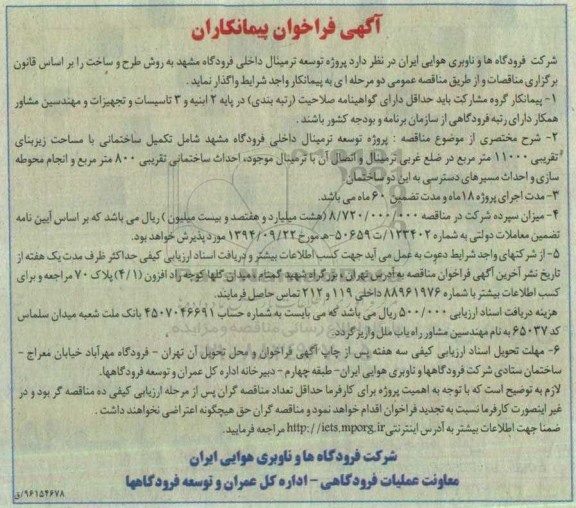 آگهی فراخوان پیمانکاران
شرکت فرودگاه ها و ناوبری هوایی ایران در نظر دارد پروژه توسعه ترمینال داخلی فرودگاه مشهد به روش طرح و ساخت را بر اساس قانون
برگزاری مناقصات و از طریق مناقصه عمومی دو مرحله ای به پیمانکار واجد شرایط واگذار نماید .
۱- پیمانکار گروه مشارکت باید حداقل دارای گواهینامه صلاحیت (رتبه بندی) در پایه ۲ ابنیه و ۳ تاسیسات و تجهیزات و مهندسین مشاور
همکار دارای رتبه فرودگاهی از سازمان برنامه و بودجه کشور باشند .
۲- شرح مختصری از موضوع مناقصه : پروژه توسعه ترمینال داخلی فرودگاه مشهد شامل تکمیل ساختمانی با مساحت زیربنای
تقریبی ۱۱۰۰۰ متر مربع در ضلع غربی ترمینال و اتصال آن با ترمینال موجود، احداث ساختمانی تقریبی ۸۰۰ متر مربع و انجام محوطه
سازی و احداث مسیرهای دسترسی به این دو ساختمان
۳- مدت اجرای پروژه ۱۸ ماه و مدت تضمین ۶۰ ماه می باشد.
۴- میزان سپرده شرکت در مناقصه ۸/۷۲۰/۰۰۰/۰۰۰ (هشت میلیارد و هفتصد و بیست میلیون ) ریال می باشد که بر اساس آیین نامه
تضمین معاملات دولتی به شماره ۱۲۳۴۰۲/ت ۵۰۶۵۹-ه مورخ ۱۳۹۴/۰۹/۲۲ مورد پذیرش خواهد بود.
۵- از شرکتهای واجد شرایط دعوت به عمل می آید جهت کسب اطلاعات بیشتر و دریافت اسناد ارزیابی کیفی حداکثر ظرف مدت یک هفته از
تاریخ نشر آخرین آگهی فراخوان مناقصه به آدرس تهران ، بزرگراه شهید گمنام ، میدان گلها کوچه راد افزون (۴/۱) پلاک ۷۰ مراجعه و برای
کسب اطلاعات بیشتر با شماره ۸۸۹۶۱۹۷۶ داخلی ۱۱۹ و ۲۱۲ تماس حاصل فرمایند.
هزینه دریافت اسناد ارزیابی ۵۰۰/۰۰۰ ریال می باشد که می بایست به شماره حساب ۴۵۰۷۰۴۶۶۹۱ بانک ملت شعبه میدان سلماس
کد ۶۵۰۳۷ به نام مهندسین مشاور راه یاب ملل واریز گردد.
۶- مهلت تحویل اسناد ارزیابی کیفی سه هفته پس از چاپ آگهی فراخوان و محل تحویل آن تهران - فرودگاه مهرآباد خیابان معراج -
ساختمان ستادی شرکت فرودگاهها و ناوبری هوایی ایران- طبقه چهارم - دبیرخانه اداره کل عمران و توسعه فرودگاهها.
لازم به توضیح است که با توجه به اهمیت پروژه برای کارفرما حداقل تعداد مناقصه گران پس از مرحله ارزیابی کیفی ده مناقصه گر بود و در
غیر اینصورت کارفرما نسبت به تجدید فراخوان اقدام خواهد نمود و مناقصه گران حق هیچگونه اعتراضی نخواهند داشت .
ضمنا جهت اطلاعات بیشتر به آدرس اینترنتی http://iets.mporg.ir مراجعه فرمایید.
شرکت فرودگاه ها و ناوبری هوایی ایران
معاونت عملیات فرودگاهی - اداره کل عمران و توسعه فرودگاهها
۹۶۱۵۴۶۷۸/ق